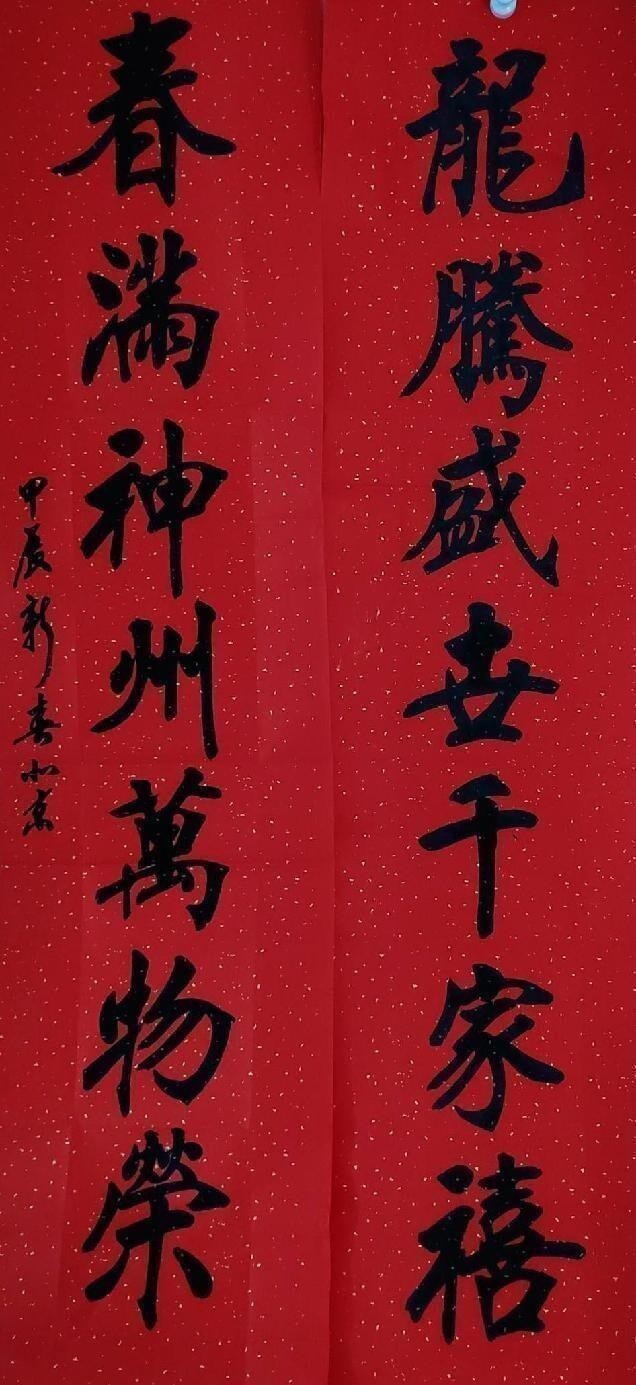 龍騰盛世千家禧
春滿神州萬物榮
甲辰新春